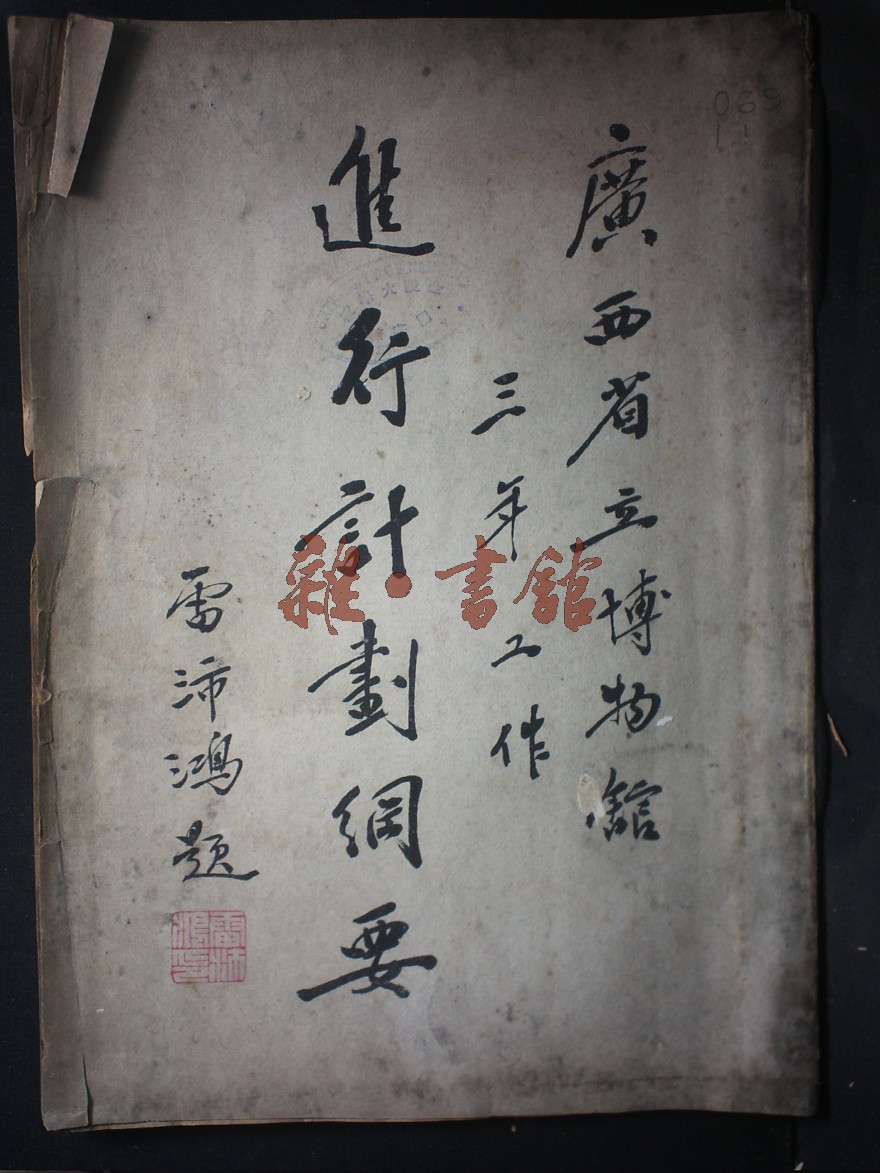 廣西省立博物館
三年工作
進行計劃綱要
雷沛鴻題
雷沛鴻印
雜·書館
069